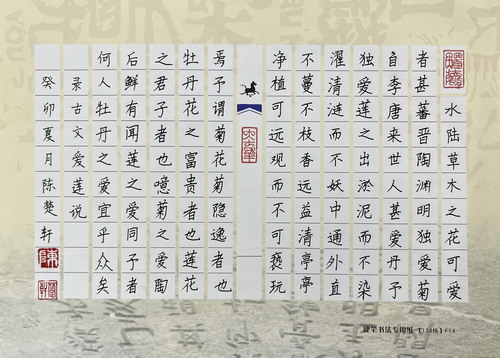 水陆草木之花可爱
者甚蕃晋陶渊明独爱菊
自李唐来世人甚爱丹予
独爱莲之出淤泥而不染
濯清涟而不妖中通外直
不蔓不枝香远益清亭亭
净植可远观而不可亵玩
焉予谓菊花菊隐逸者也
牡丹花之富贵者也莲花
之君子者也噫菊之爱陶
后鲜有闻莲之爱同予者
何人牡丹之爱宜乎众矣
录古文爱莲说
癸卯夏月陈楚轩
硬笔书法专用纸-【138格】